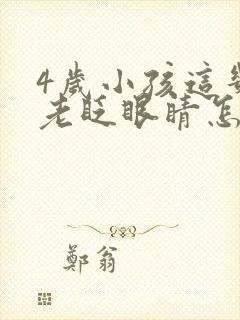 4歲小孩這幾
老眨眼睛怎
鄭翁